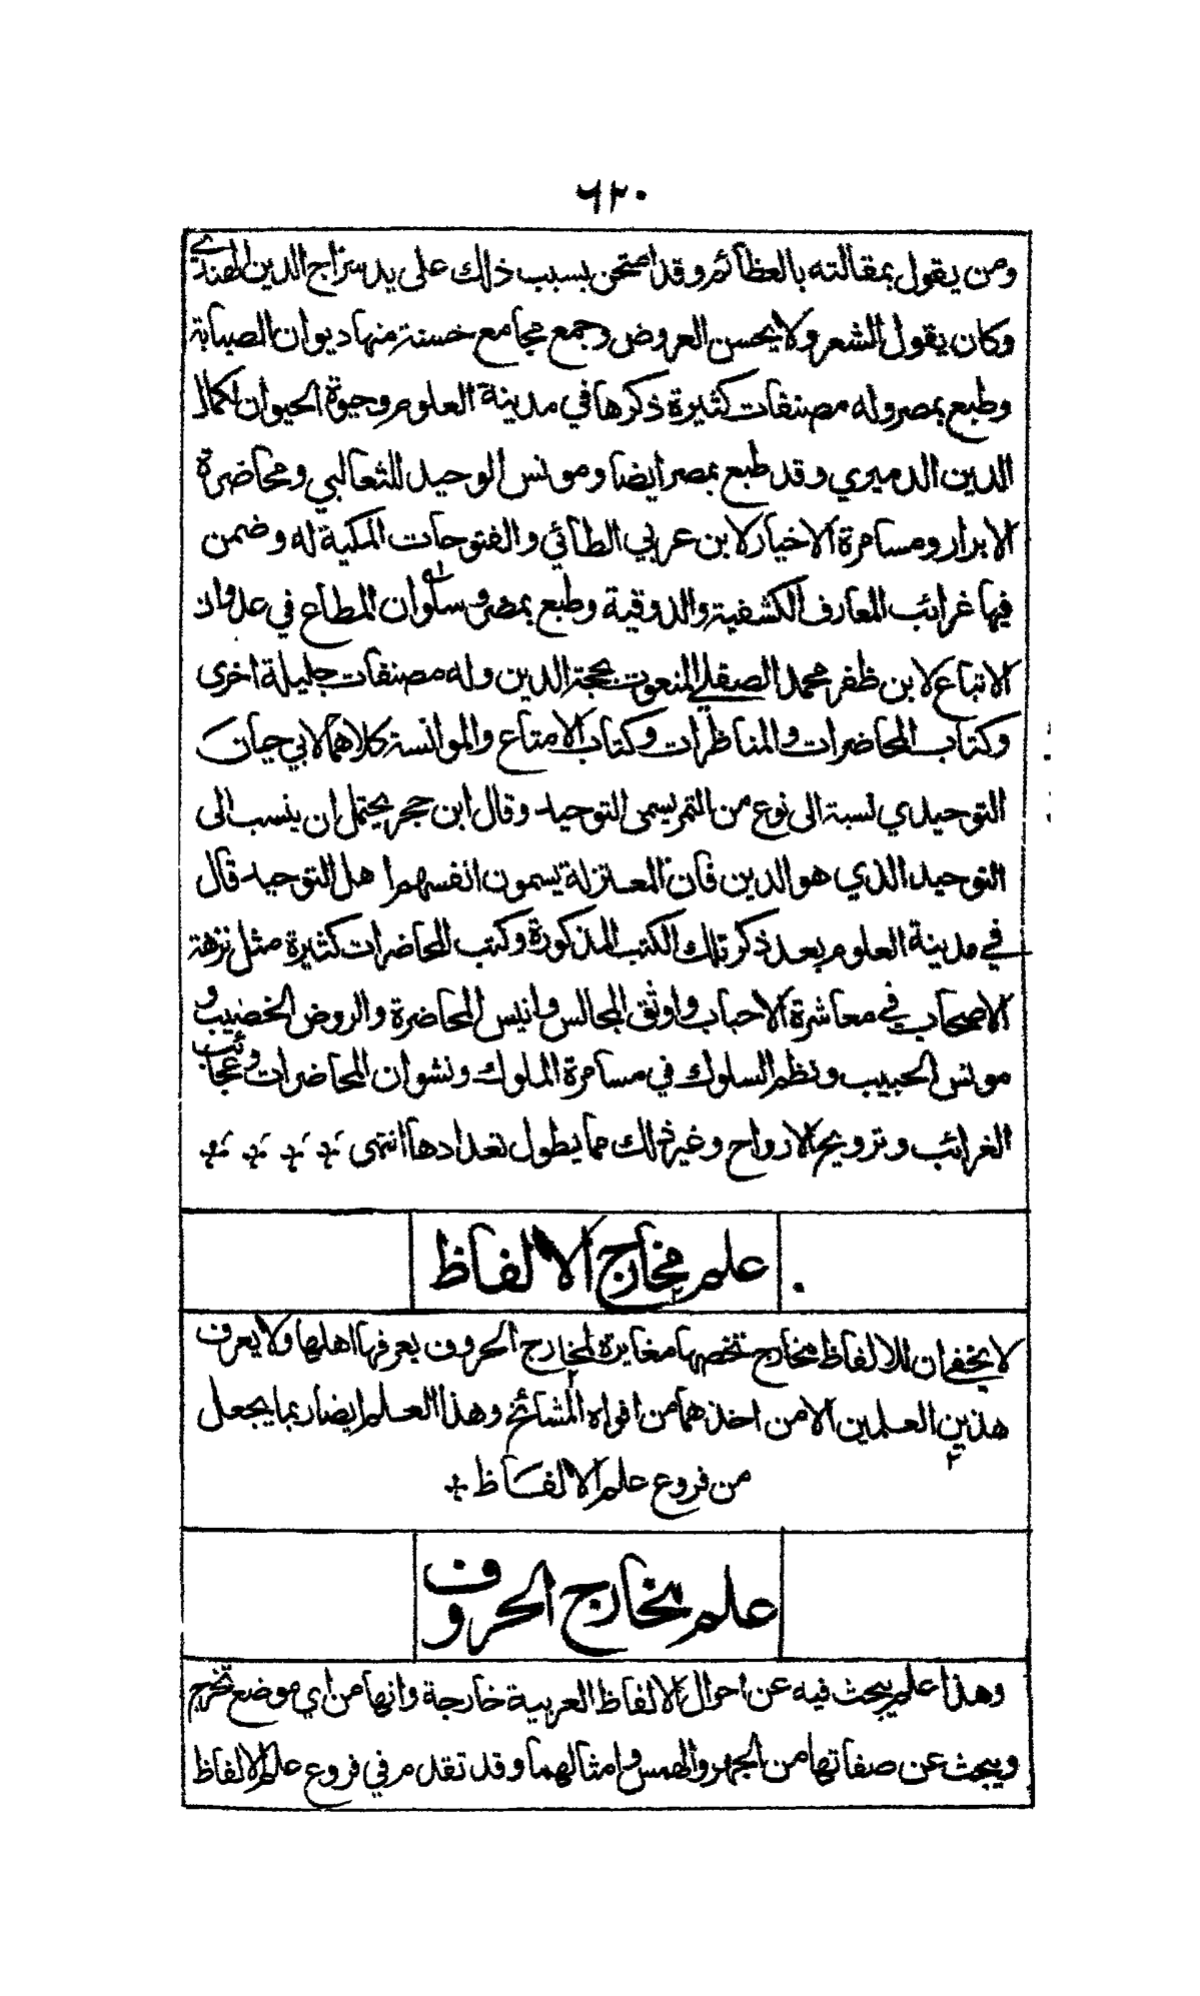 ٦٢٠
ومن يقول بمقالته بالعظائم وقد امتحن بسبب ذلك على يد سراج الدين الهندي
وكان يقول الشعر ولا يحسن العروض وجمع مجامع حسنة منها ديوان الصبابة
وطبع بمصر وله مصنفات كثيرة ذكرها في مدينة العلوم وحيوة الحيوان لكمال
الدين الدميري وقد طبع بمصر ايضا ومونس الوحيد للثعالبي ومحاضرة
الابرار ومسامرة الاخيار لابن عربي الطائي والفتوحات المكية له وضمن
فيها غرائب المعارف الكشفية والذوقية وطبع بمصر وسلوان المطاع في عدوان
الاتباع لابن ظفر محمد الصقلي المنعوت بحجة الدين وله مصنفات جليلة اخرى
وكتاب المحاضرات والمناظرات وكتاب الامتاع والموانسة كلاهما لابي حيان
التوحيدي نسبة الى نوع من التمر يسمى التوحيد وقال ابن حجر يحتمل ان ينسب الى
التوحيد الذي هو الدين فان المعتزلة يسمون انفسهم اهل التوحيد قال
في مدينة العلوم بعد ذكر تلك الكتب المذكورة وكتب المحاضرات كثيرة مثل نزهة
الاصحاب في معاشرة الاحباب واوثق المجالس وانيس المحاضرة والروض الخصيب و
مونس الحبيب ونظم السلوك في مسامرة الملوك ونشوان المحاضرات وعجائب
الغرائب وترويح الارواح وغير ذلك مما يطول تعدادها انتهى
علم مخارج الالفاظ
لا يخفى ان للالفاظ مخارج تخصها مغايرة لمخارج الحروف يعرفها اهلها ولا يعرف
هذين العلمين الا من اخذهما من افواه المشائخ وهذا العلم ايضا ربما يجعل
من فروع علم الالفاظ
علم مخارج الحروف
وهذا علم يبحث فيه عن احوال الالفاظ العربية خارجة وانها من اي موضع تخرج
ويبحث عن صفاتها من الجهر والهمس وامثالهما وقد تقدم في فروع علم الالفاظ